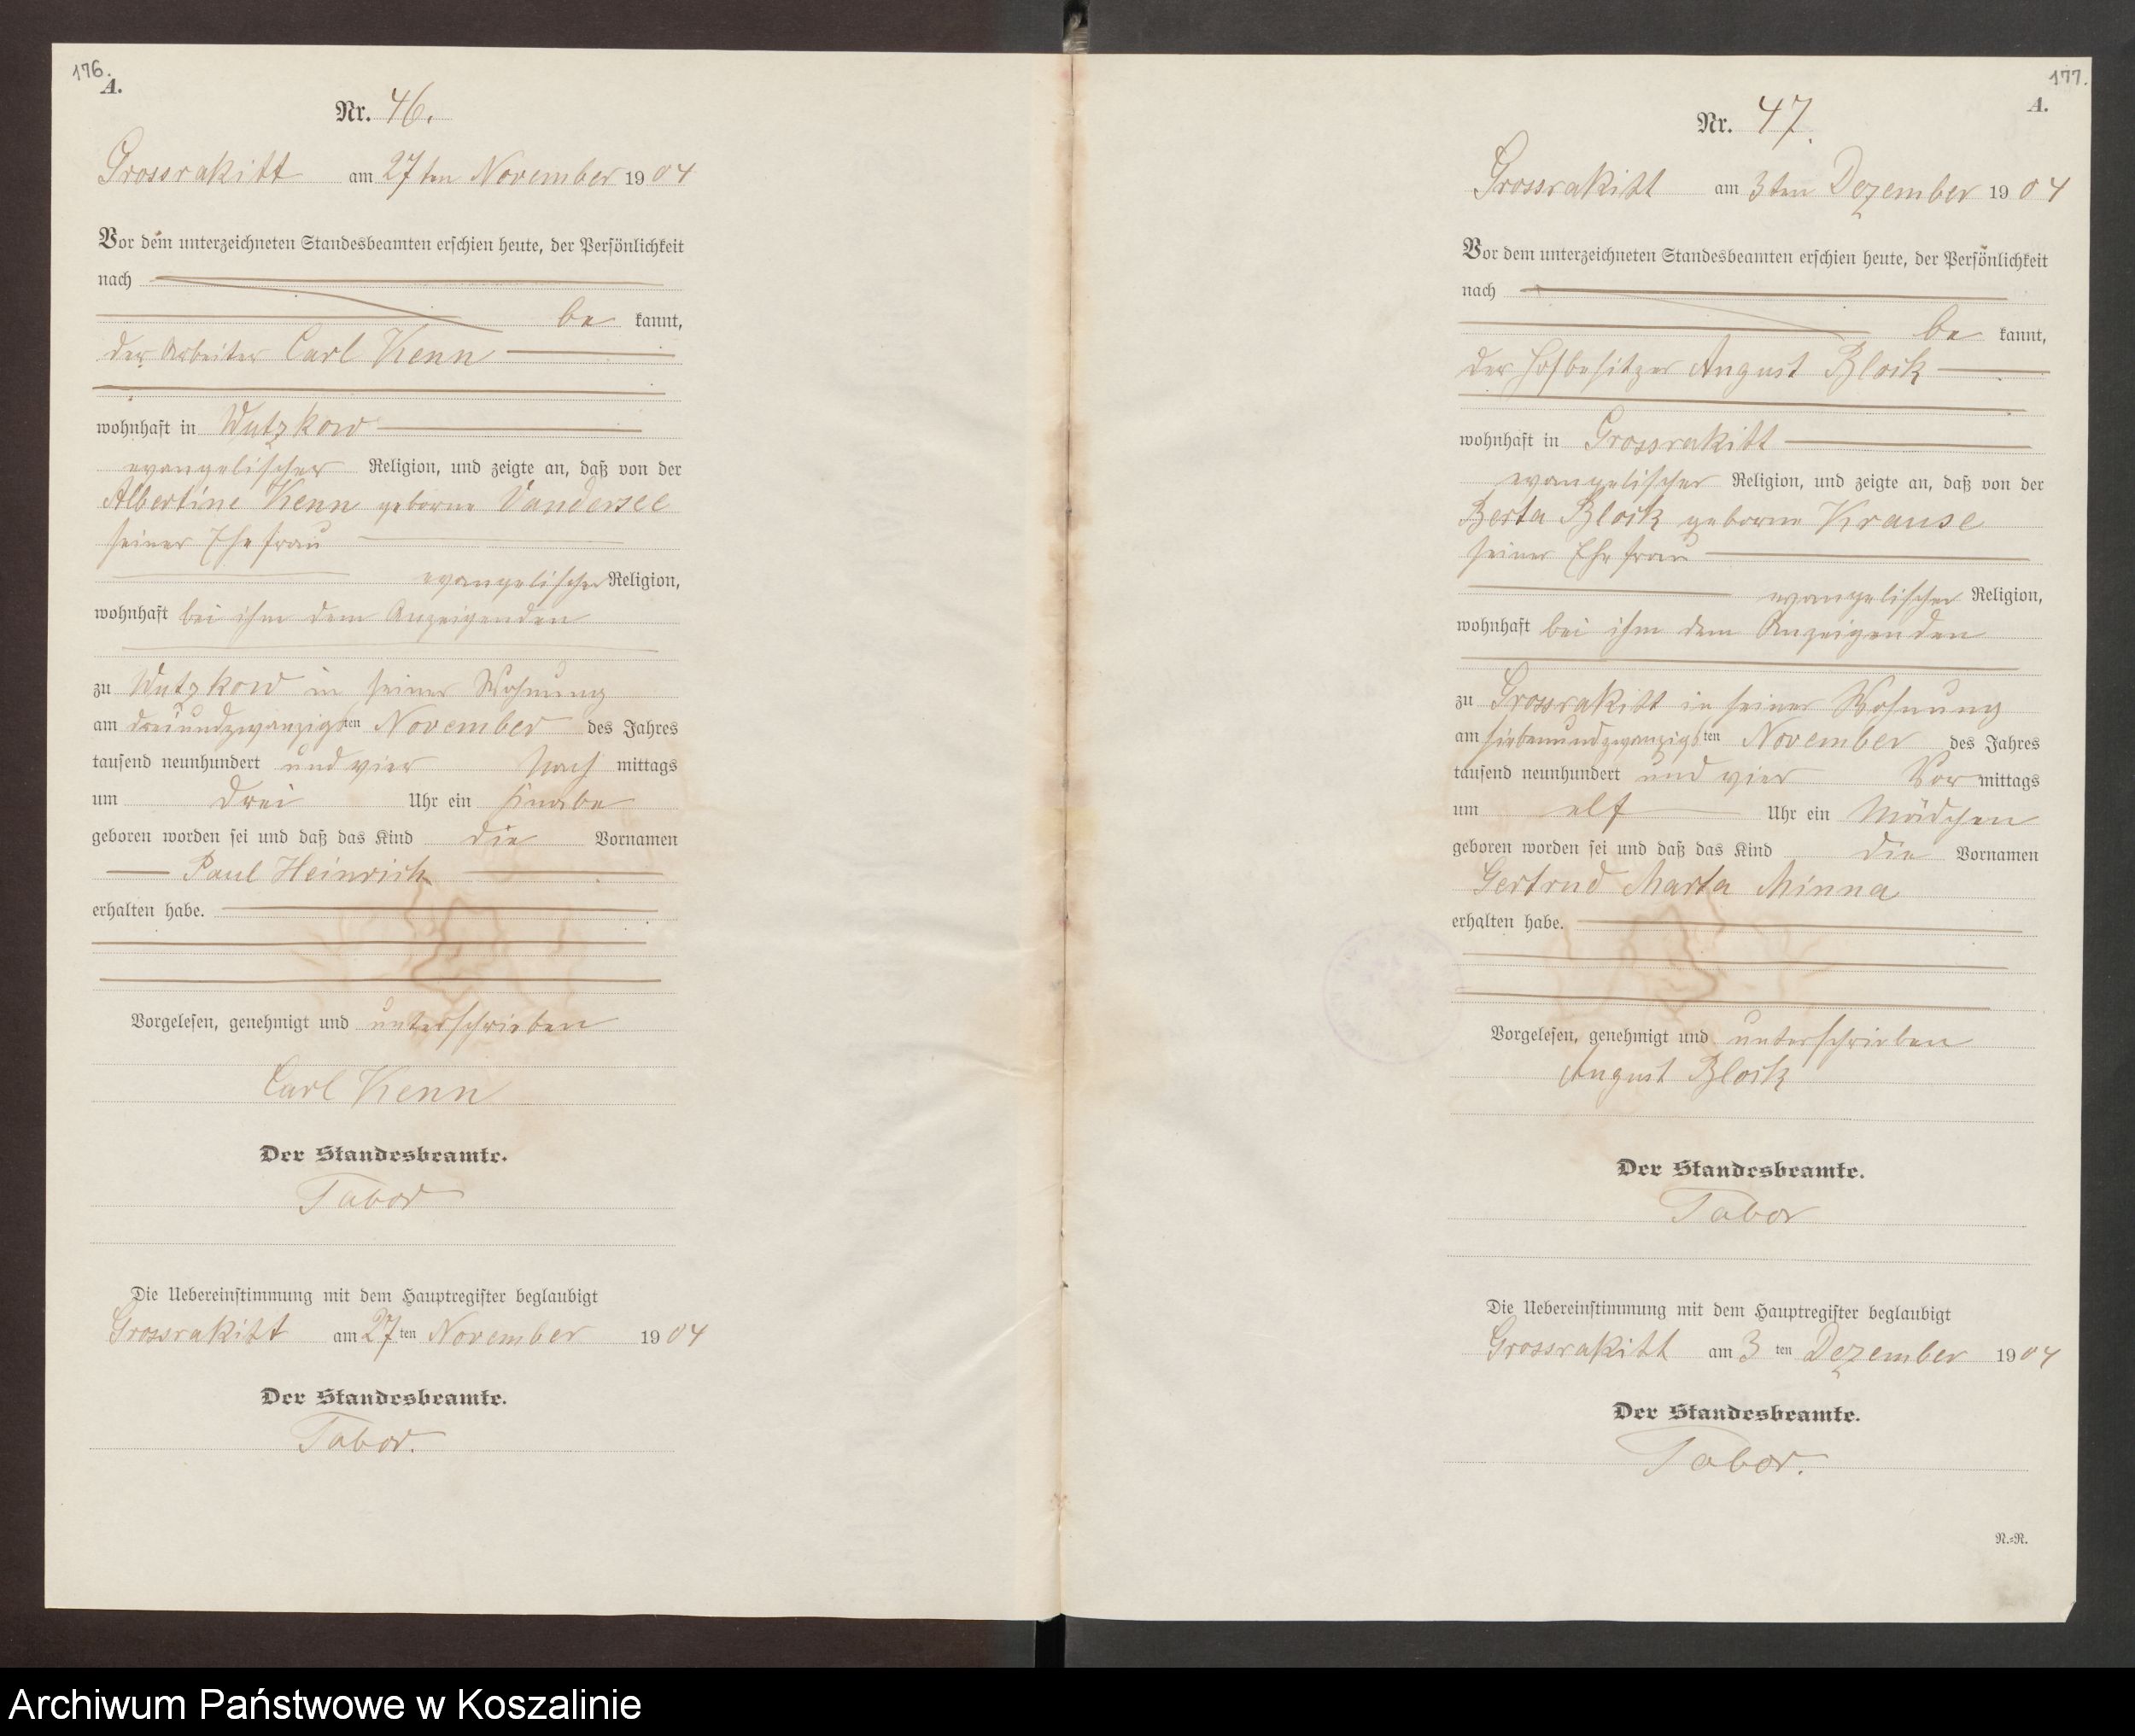 176.
A.
Nr. 46.
Grossrakitt am 27ten November 1904
Vor dem unterzeichneten Standesbeamten erschien heute, der Persönlichkeit
nach
be kannt,
der Arbeiter Carl Kenn
wohnhaft in Wutzkow
evangelischer Religion, und zeigte an, daß von der
Albertine Kenn geborne Vandersee
seiner Ehefrau
evangelischer Religion,
wohnhaft bei ihm dem Anzeigenden
zu Wutzkow in seiner Wohnung
am dreiundzwanzigsten November des Jahres
tausend neunhundert und vier Nach mittags
um drei Uhr ein Knabe
geboren worden sei und daß das Kind die Vornamen
Paul Heinrich
erhalten habe.
Vorgelesen, genehmigt und unterschrieben
Carl Kenn
Der Standesbeamte.
Tabor
Die Uebereinstimmung mit dem Hauptregister beglaubigt
Grossrakitt am 27ten November 1904
Der Standesbeamte.
Tabor.
177.
A.
Nr. 47.
Grossrakitt am 3ten Dezember 1904
Vor dem unterzeichneten Standesbeamten erschien heute, der Persönlichkeit
nach
be kannt,
der Hofbesitzer August Block
wohnhaft in Grossrakitt
evangelischer Religion, und zeigte an, daß von der
Berta Block geborne Krause
seiner Ehefrau
evangelischer Religion,
wohnhaft bei ihm dem Anzeigenden
zu Grossrakitt in seiner Wohnung
am siebenundzwanzigsten November des Jahres
tausend neunhundert und vier Vor mittags
um elf Uhr ein Mädchen
geboren worden sei und daß das Kind die Vornamen
Gertrud Marta Minna
erhalten habe.
Vorgelesen, genehmigt und unterschrieben
August Block
Der Standesbeamte.
Tabor
Die Uebereinstimmung mit dem Hauptregister beglaubigt
Grossrakitt am 3 ten Dezember 1904
Der Standesbeamte.
Tabor.
N.=R.
Archiwum Państwowe w Koszalinie